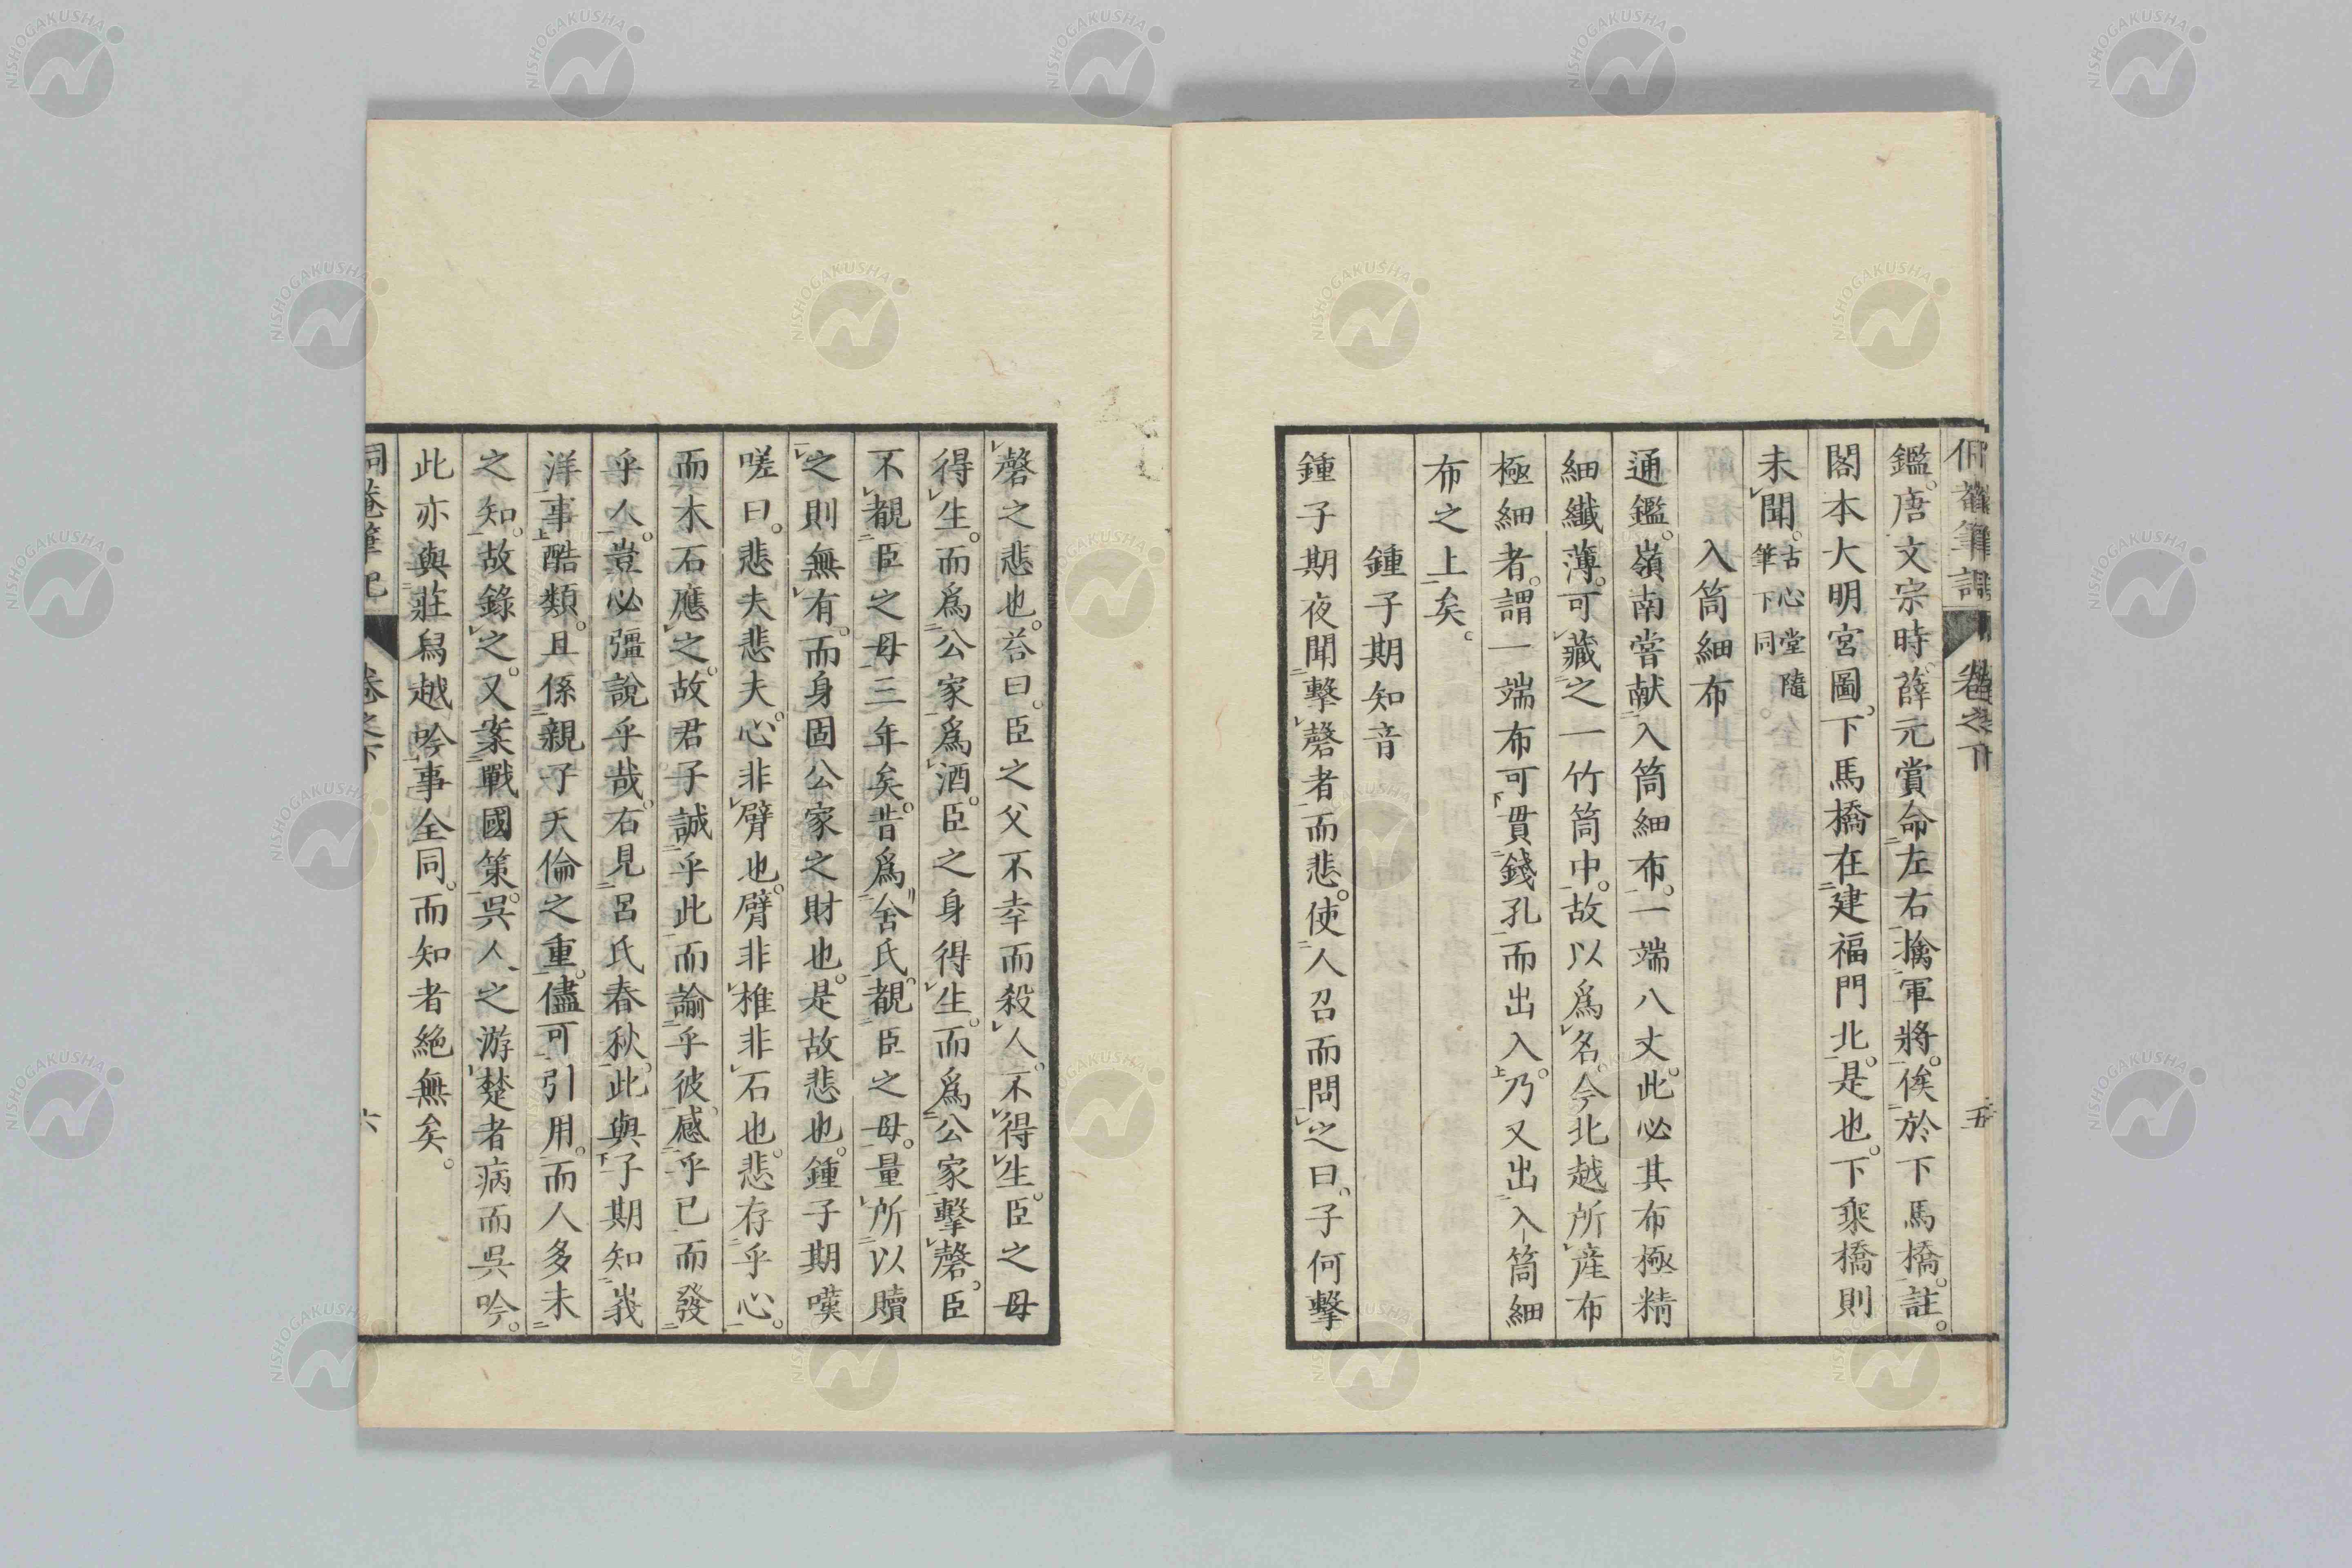 鑑。唐文宗時。薛元賞命左右擒軍將。俟於下馬橋。註。
閣本大明宮圖。下馬橋在建福門北。是也。下乘橋則
未聞。古心堂隨筆下同
入筒細布
通鑑。嶺南嘗献入筒細布。一端八丈。此必其布極精
細纖薄。可藏之一竹筒中。故以爲名。今北越所產布
極細者。謂一端布可貫錢孔而出入。乃又出入筒細
布之上矣。
鍾子期知音
鍾子期夜聞擊磬者而悲。使人召而問之曰。子何擊
磬之悲也。荅曰。臣之父不幸而殺人。不得生。臣之母
得生。而爲公家爲酒。臣之身得生。而爲公家擊磬。臣
不覩臣之母三年矣。昔爲舍氏。覩臣之母。量所以贖
之則無有。而身固公家之財也。是故悲也。鍾子期嘆
嗟曰。悲夫悲夫。心非臂也。臂非椎非石也。悲存乎心。
而木石應之。故君子誠乎此而諭乎彼。感乎已而發
乎人。豈必彊說乎哉。右見呂氏春秋。此與子期知峩
洋事酷類。且係親子天倫之重。儘可引用。而人多未
之知。故錄之。又案戰國策。吳人之游楚者病而吳吟。
此亦與莊舄越吟事全同。而知者絕無矣。
侗菴筆記 卷之下 六